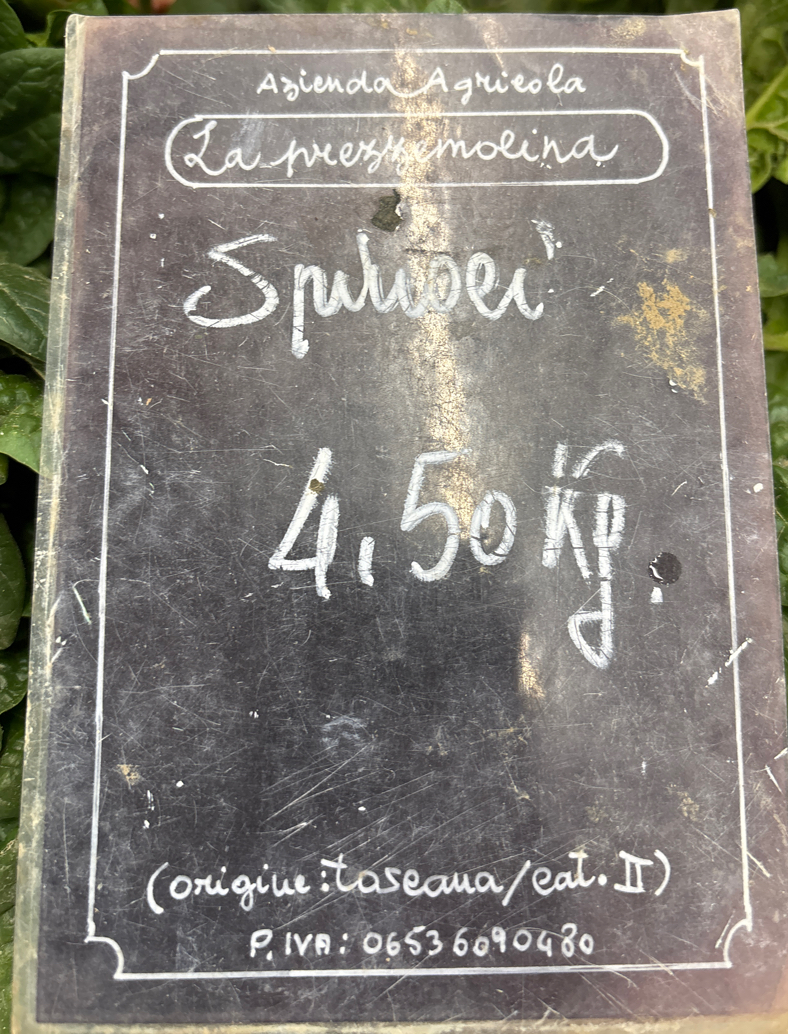 Azienda Agricola
La prezzemolina
Spinaci
4,50 Kg.
(origine: toscana/cat. II)
P. IVA: 06536090480